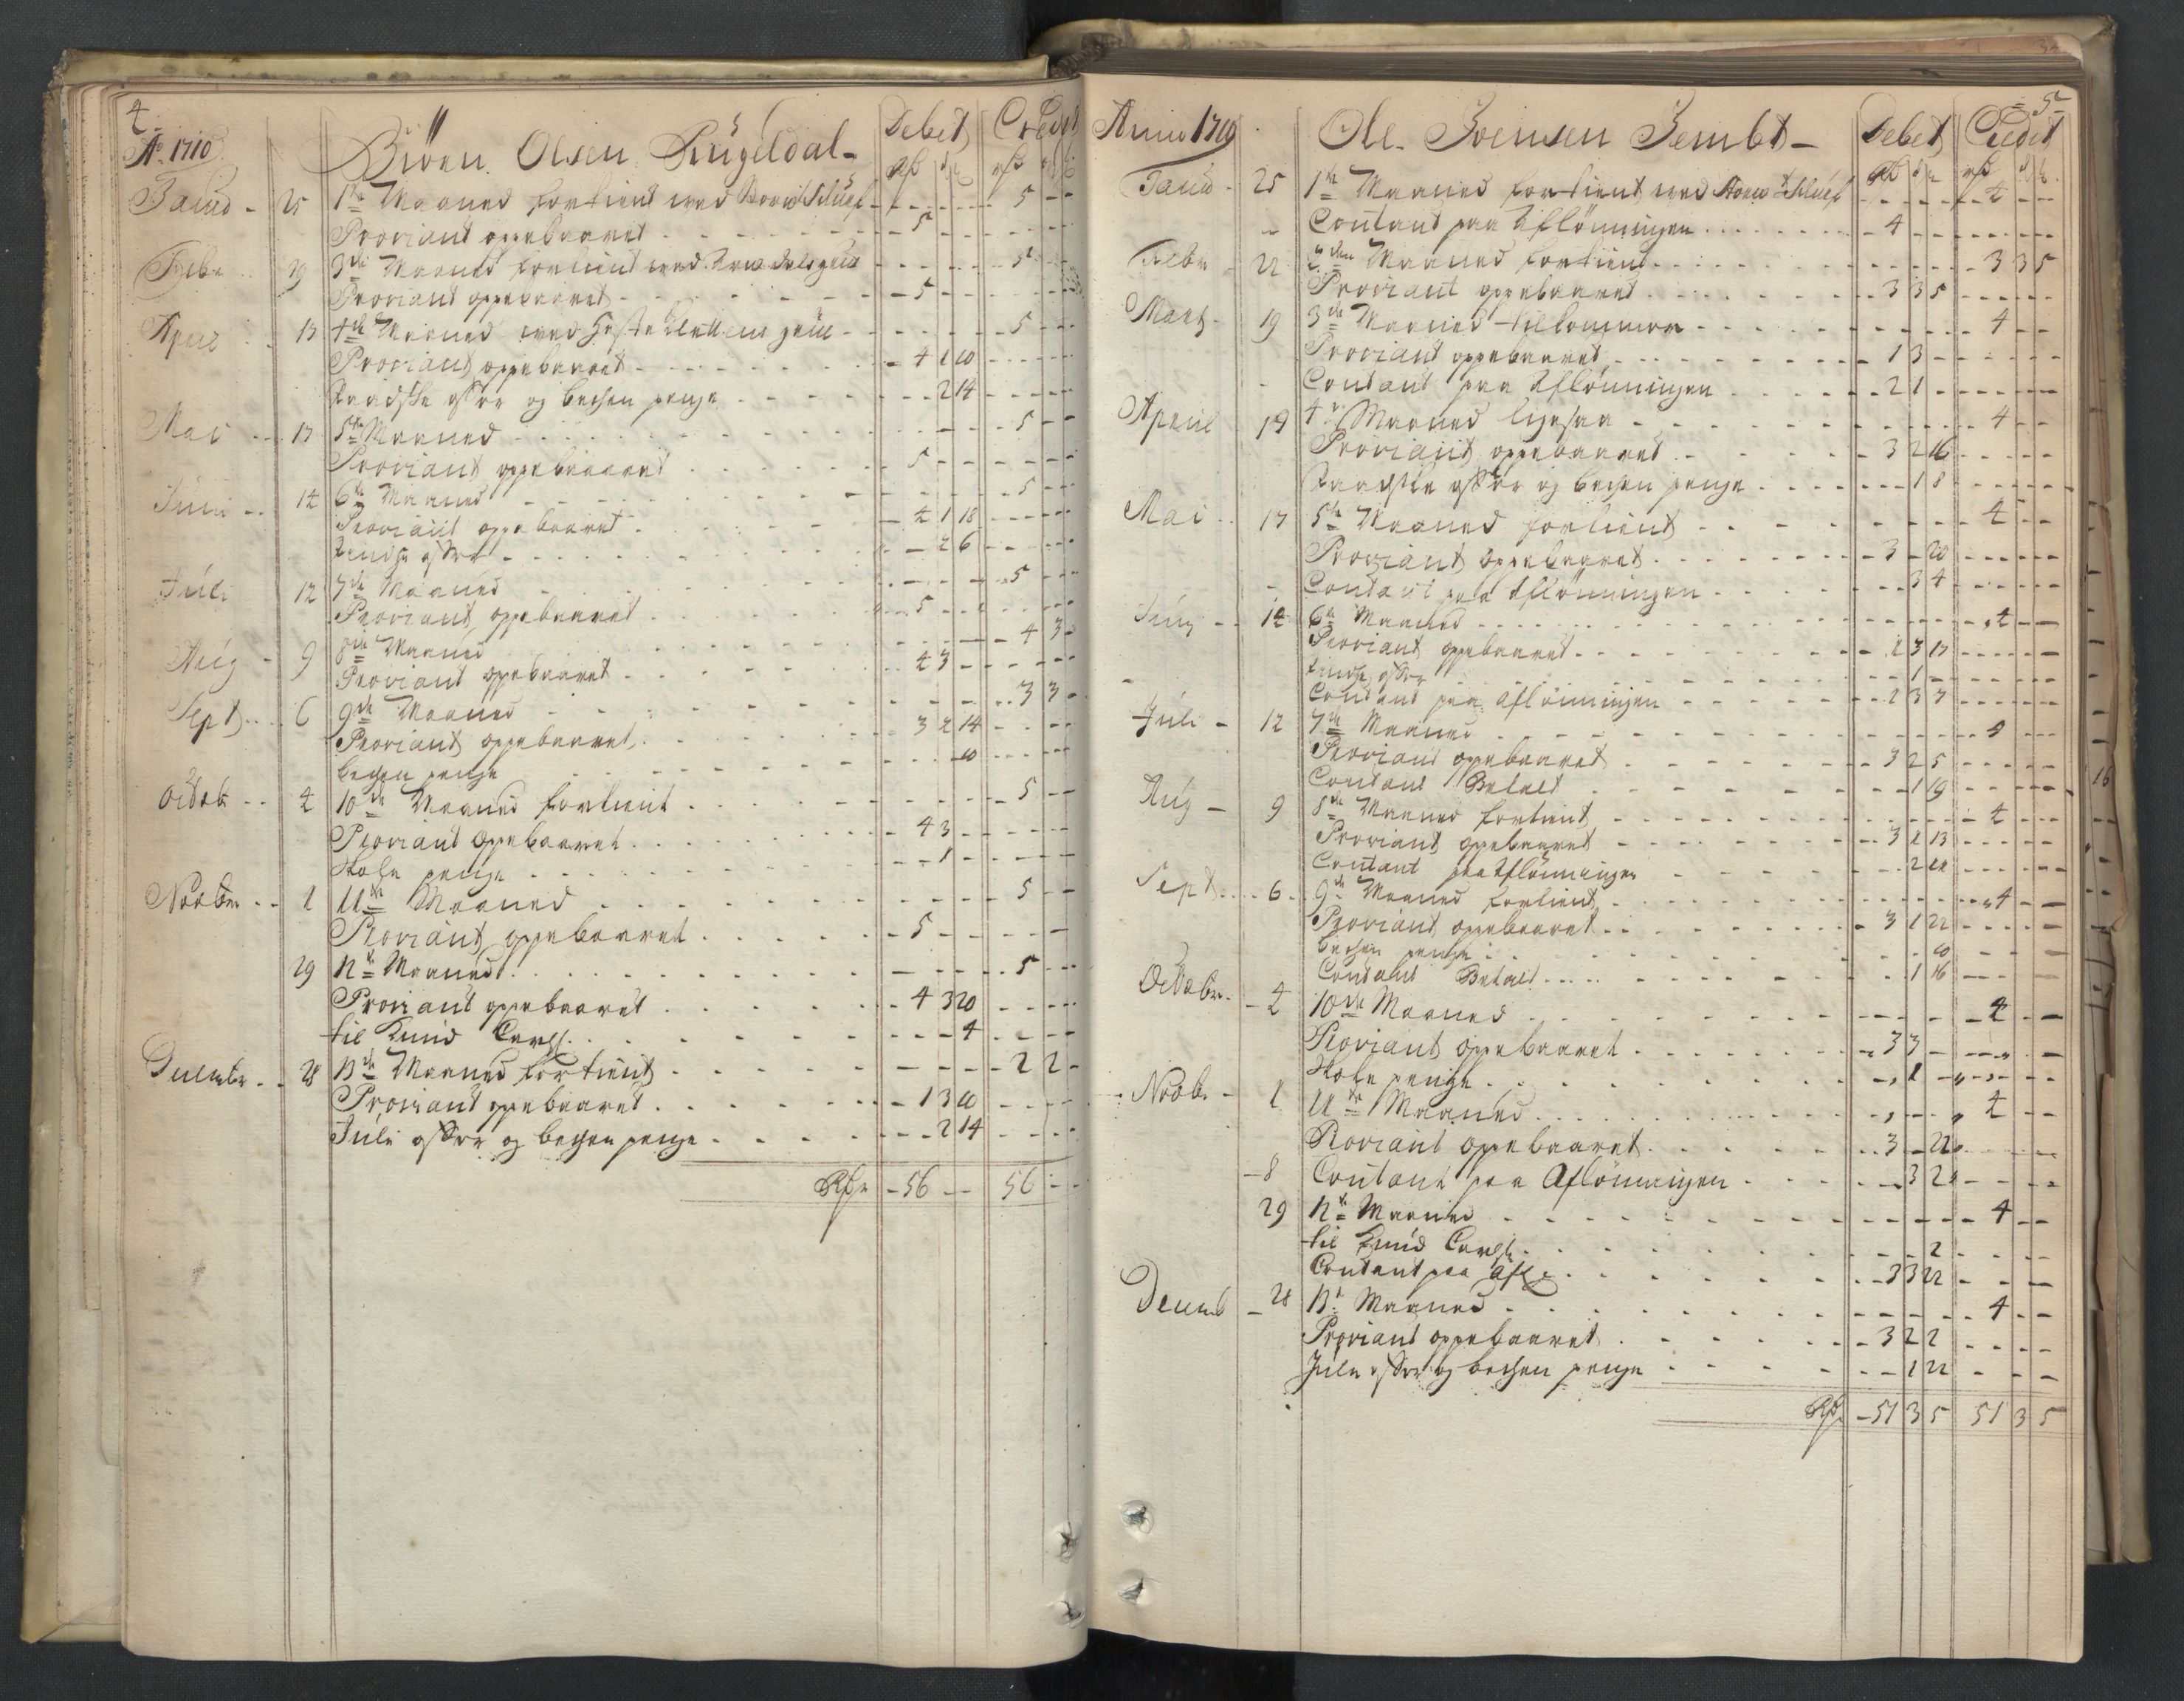 4
Ao. 1710
Biörn Olsen Ringeldal
Debet Credit
Janu 25 1te Maaned fortient med 5
Proviant oppebaaret 5
Febr 19 3de Maaned fortient med 5
Proviant oppebaaret 5
April 17 4de Maaned med 5
Proviant oppebaaret 4 1 10
offer og becken penge 2 14
Mai 17 5te Maaned 5
Proviant oppebaaret 5
Juni 14 6te Maaned 5
Proviant oppebaaret 4 1 18
offer 2 6
Juli 12 7de Maaned 5
Proviant oppebaaret 5
Aug 9 8de Maaned 4 3
Proviant opebaaret 4 3
Sept 6 9de Maaned 3 3
Proviant oppebaaret 3 2 14
becken penge 10
Octob 4 10de Maaned fortient 5
Proviant oppebaaret 4 3
Skole penge 1
Novbr 1 11te Maaned 5
Proviant oppebaaret 5
29 12te Maaned 5
Proviant oppebaaret 4 3 20
til Knud Carls. 4
Decembr 28 13de Maaned fortient 2 2
Proviant oppebaaret 1 3 10
Jule offer og becken penge 2 14
Rdr 56 56
5
Anno 1710
Ole Svensen Jembt
Debet Credit
Janu 25 1te Maaned fortient med 4
Contant paa Aflönningen 4
Febr 22 2den Maaned fortient 3 3 5
Proviant oppebaaret 3 3 5
Marti 19 3de Maaned tilkommer 4
Proviant oppebaaret 1 3
Contant paa Aflönningen 2 1
April 19 4de Maaned ligesaa 4
Proviant oppebaaret 3 2 16
offer og becken penge 1 8
Mai 17 5te Maaned fortient 4
Proviant oppebaaret 3 20
Contant paa Aflönningen 3 4
Juni 14 6te Maaned 4
Proviant oppebaaret 3 17
offer 1
Contant paa Aflönningen 3 7
Juli 12 7de Maaned
Proviant oppebaaret 3 2 5
Contant Betalt 1 19
Aug 9 8de Maaned fortient 4
Proviant oppebaaret 3 1 13
Contant paa Aflönningen 2
Sept 6 9de Maaned fortient 4
Proviant oppebaaret 3 1 22
becken penge 10
Contant Betalt 1 16
Octobr 4 10de Maaned 4
Proviant oppebaaret 3 3
Skole penge 1
Novbr 1 11te Maaned 4
Proviant oppebaaret 3
8 Contant paa Aflönningen 3
29 12te Maaned 4
til Knud Carls. 2
Contant paa Afl: 3 3 22
Decemb 28 13de Maaned 4
Proviant oppebaaret 3 2 2
Jule offer og becken penge 1 22
Rdr 51 3 5 51 3 5
16